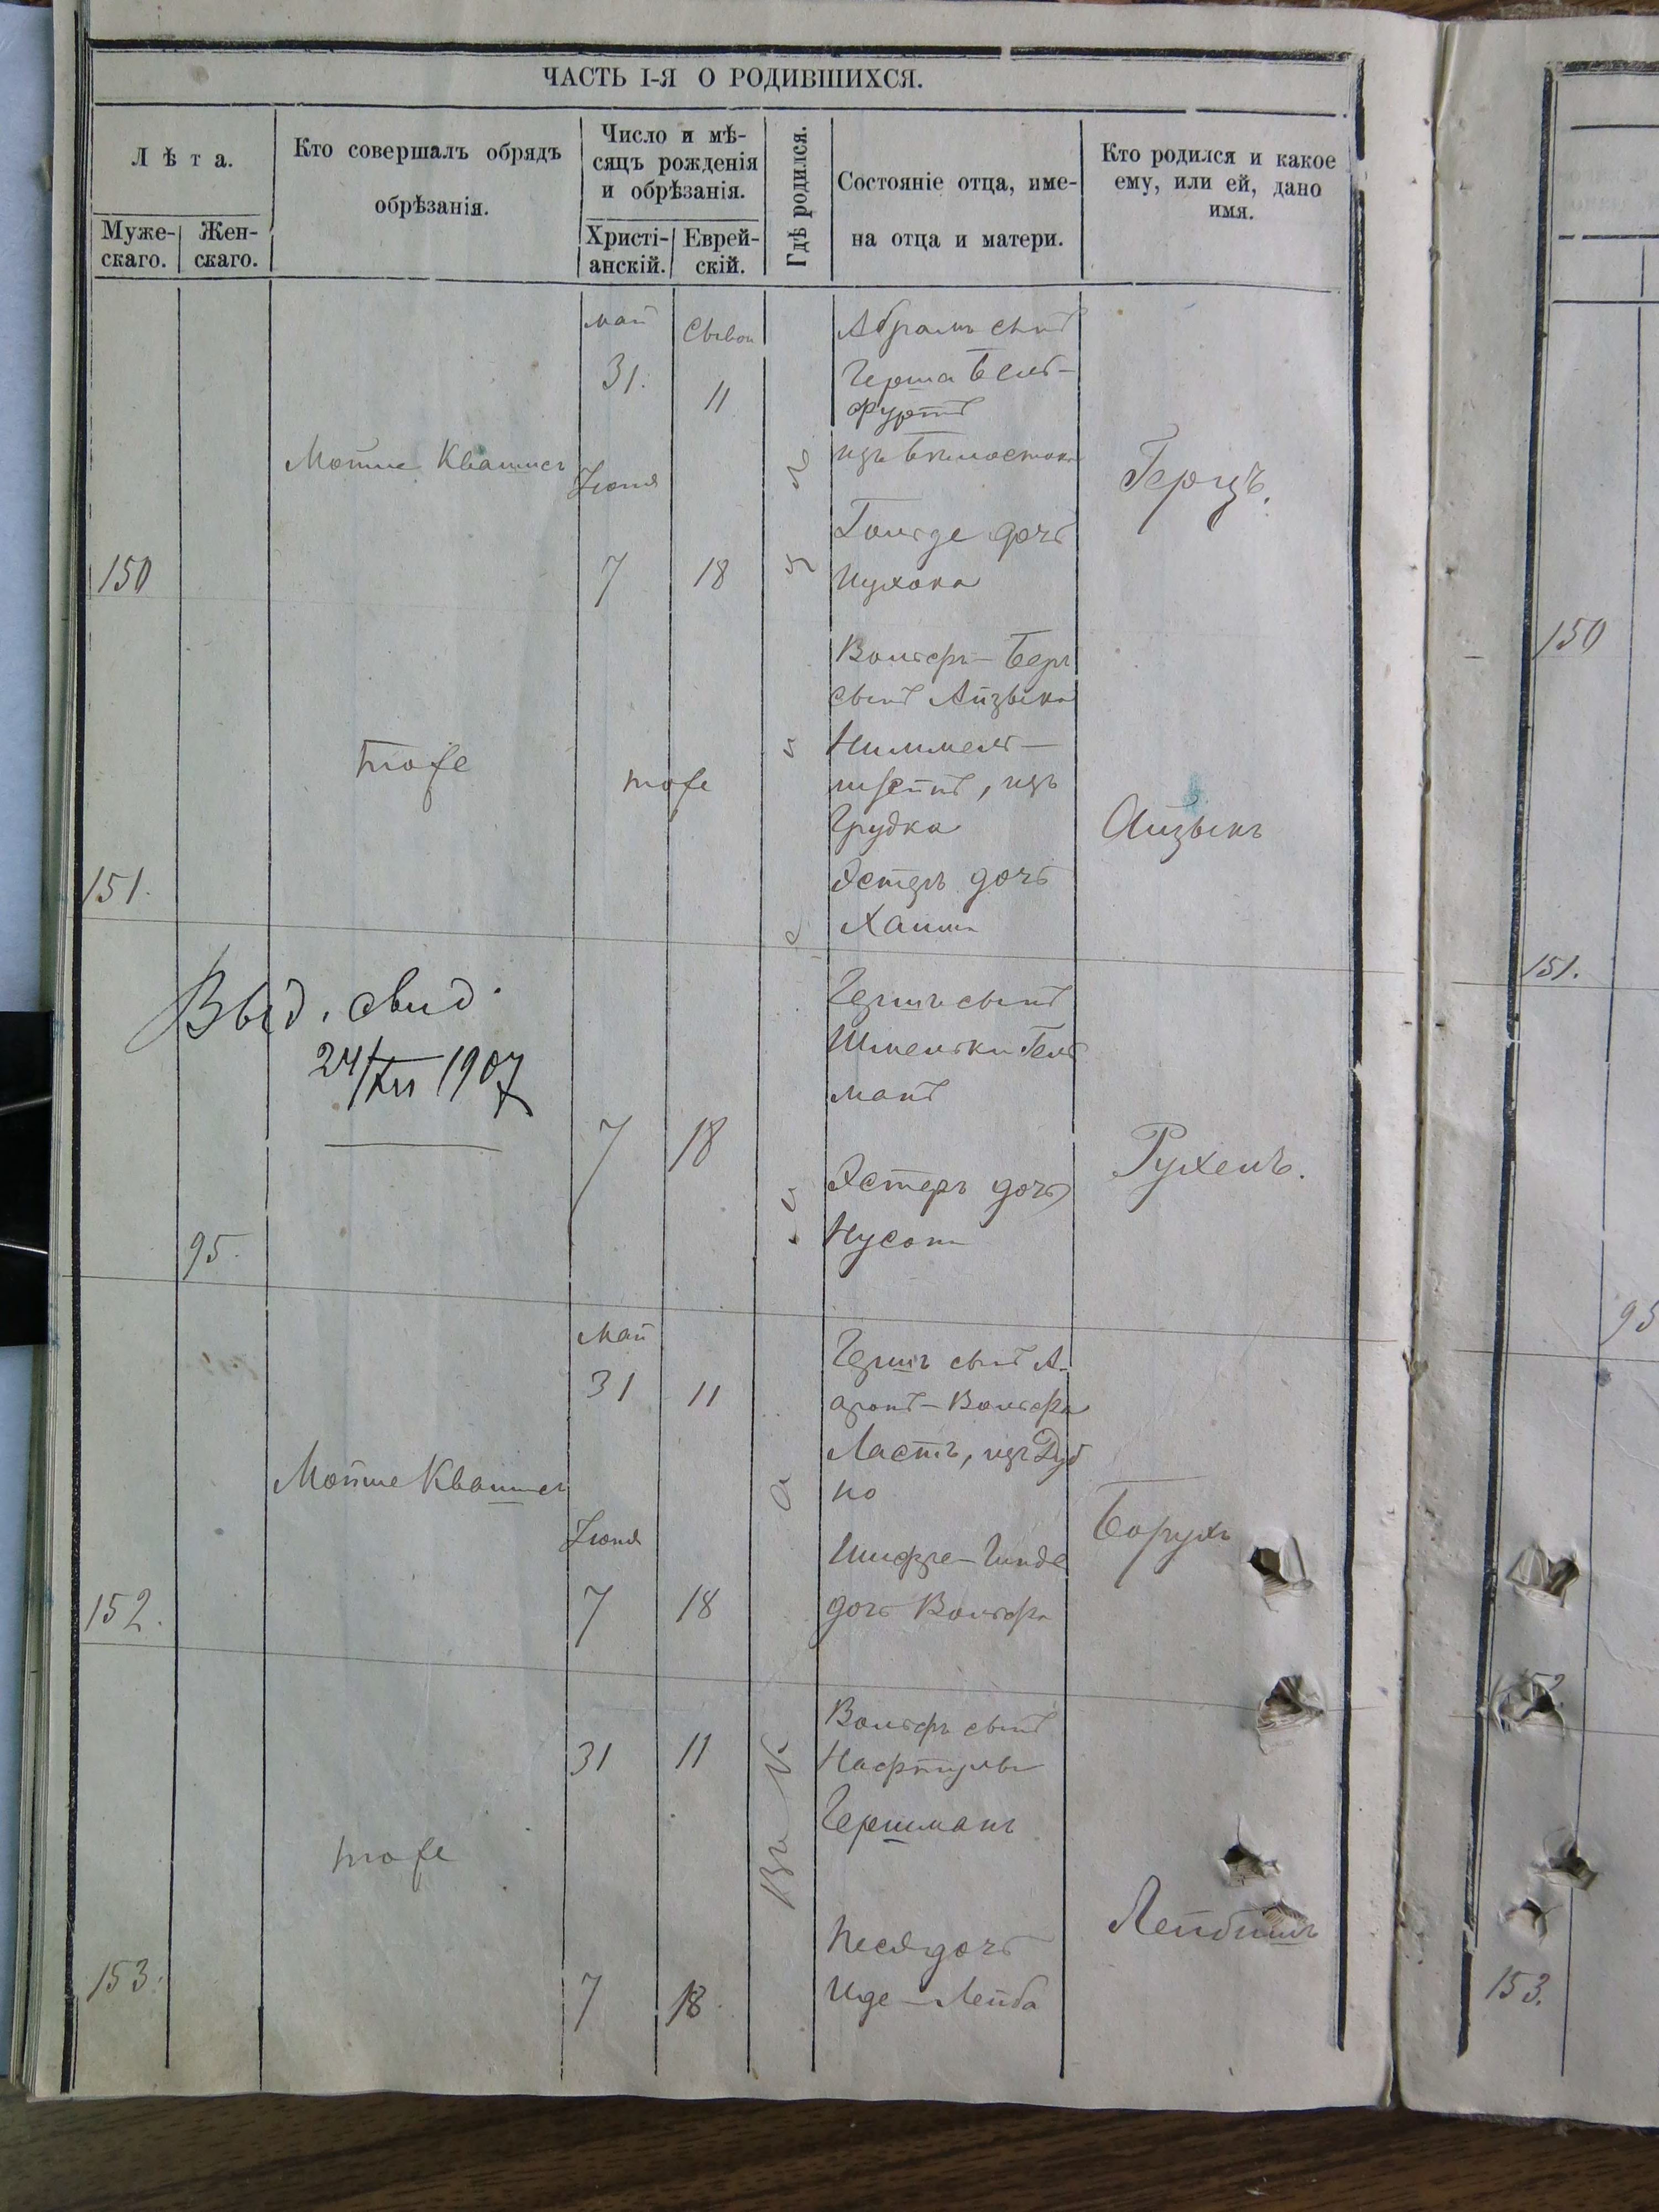 ЧАСТЬ I-Я О РОДИВШИХСЯ.
Лѣта.
Муже-
скаго.
Жен-
скаго.
Кто совершалъ обрядъ
обрѣзанія.
Число и мѣ-
сяцъ рожденія
и обрѣзанія.
Христі-
анскій.
Еврей-
скій.
Гдѣ родился.
Состояніе отца, име-
на отца и матери.
Кто родился и какое
ему, или ей, дано
имя.
150
Мойше
Май
31.
Іюня
7
11
18
Абрамъ сынъ
Герша Бель-
фуртъ
изъ Бѣлостока
Гольде дочь
Герцъ.
151.
тоже
тоже
Вольфъ-Беръ
сынъ Айзыка
изъ
Грудка
Эстеръ дочь
Хаима
Айзыкъ
Выд. свид.
24/XII 1907
95.
7
18
Гершъ сынъ
Шмельки Гель
манъ
Эстеръ дочь
Нусона
Рухель.
152.
Мойше
Май
31
Іюня
7
11
18
Гершъ сынъ А-
аронъ-Вольфа
Ластъ, изъ Дуб
но
Шифре-Гинде
дочь Вольфа
Борухъ
153.
тоже
31
7
11
18.
Вольфъ сынъ
Нафтулы
Гершманъ
Песя дочь
Иде-Лейба
Лейбишъ
150
151.
95
152
153.